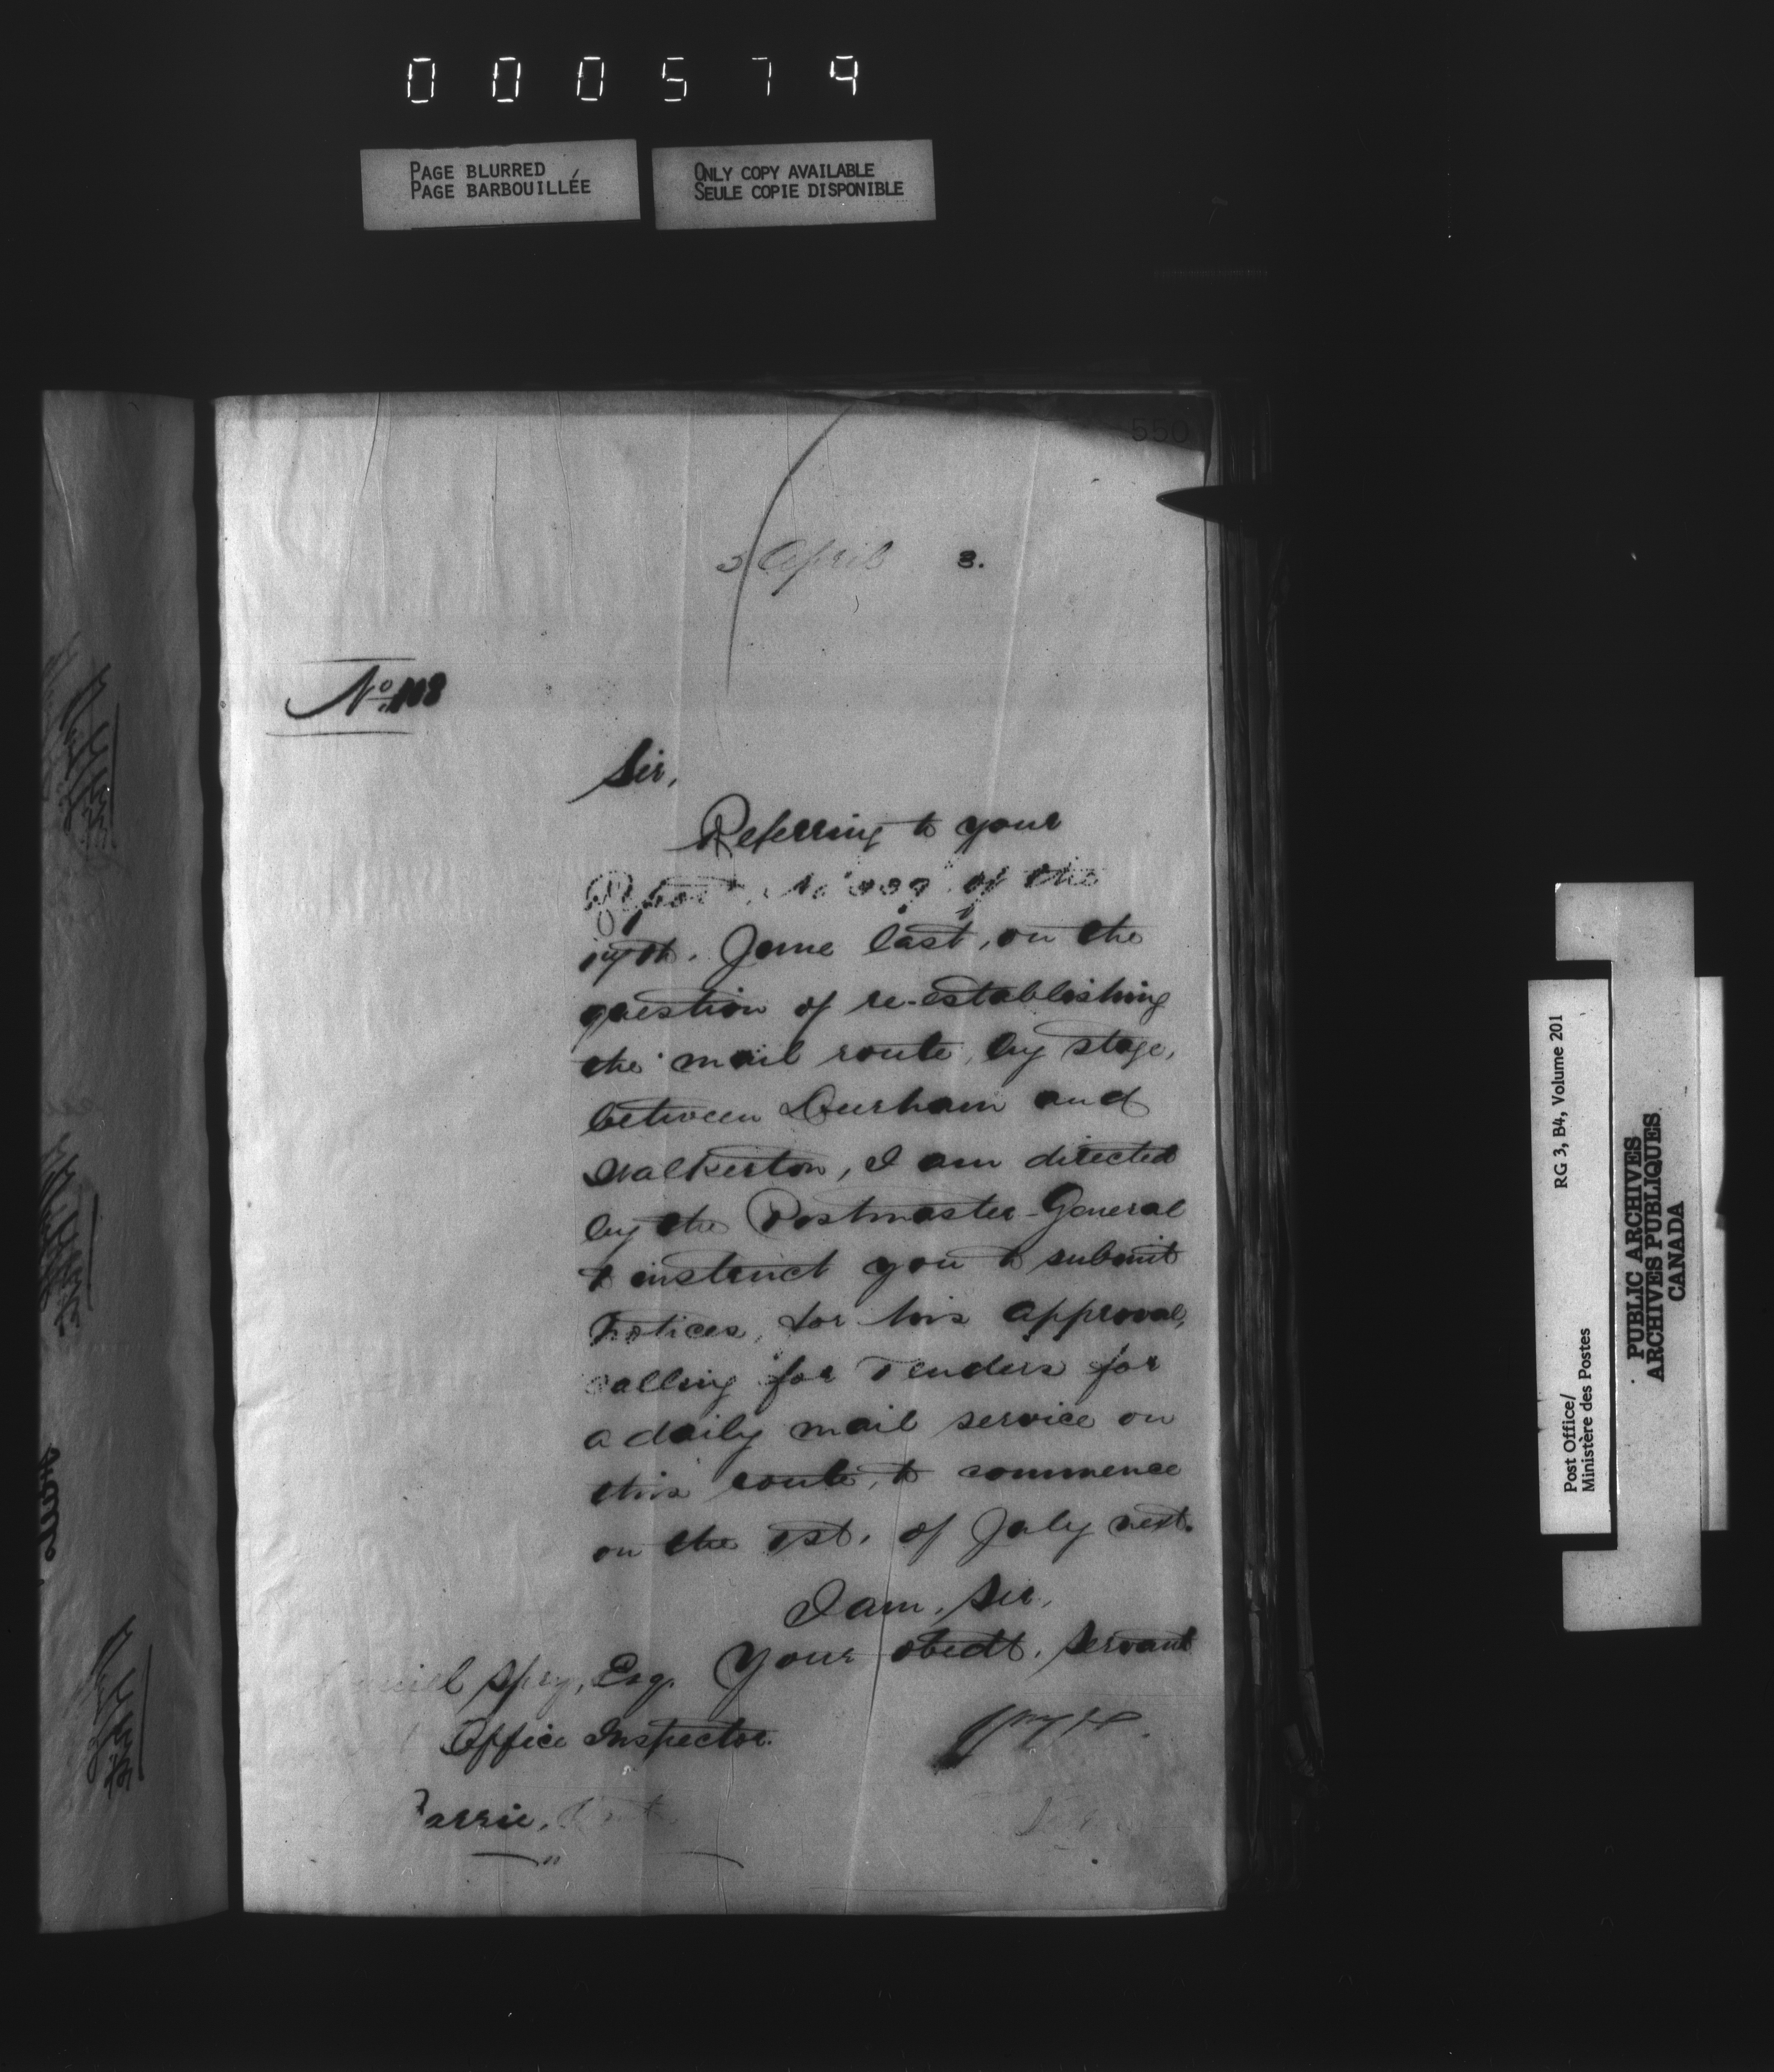 000579
PAGE BLURRED
PAGE BARBOUILLÉE
ONLY COPY AVAILABLE
SEULE COPIE DISPONIBLE
550
April 3.
No. 108
Sir,
Referring to your
Report, No of the
June last, on the
question of re-establishing
the mail route, by stage,
between Durham and
Walkerton, I am directed
by the Postmaster-General
to instruct you to submit
Notices, for his approval,
calling for Tenders for
a daily mail service on
this route, to commence
on the 1st. of July next.
I am, Sir,
Your obedt. servant
Spry, Esq.
Office Inspector.
Barrie,
RG 3, B4, Volume 201
Post Office/
Ministère des Postes
PUBLIC ARCHIVES
ARCHIVES PUBLIQUES
CANADA